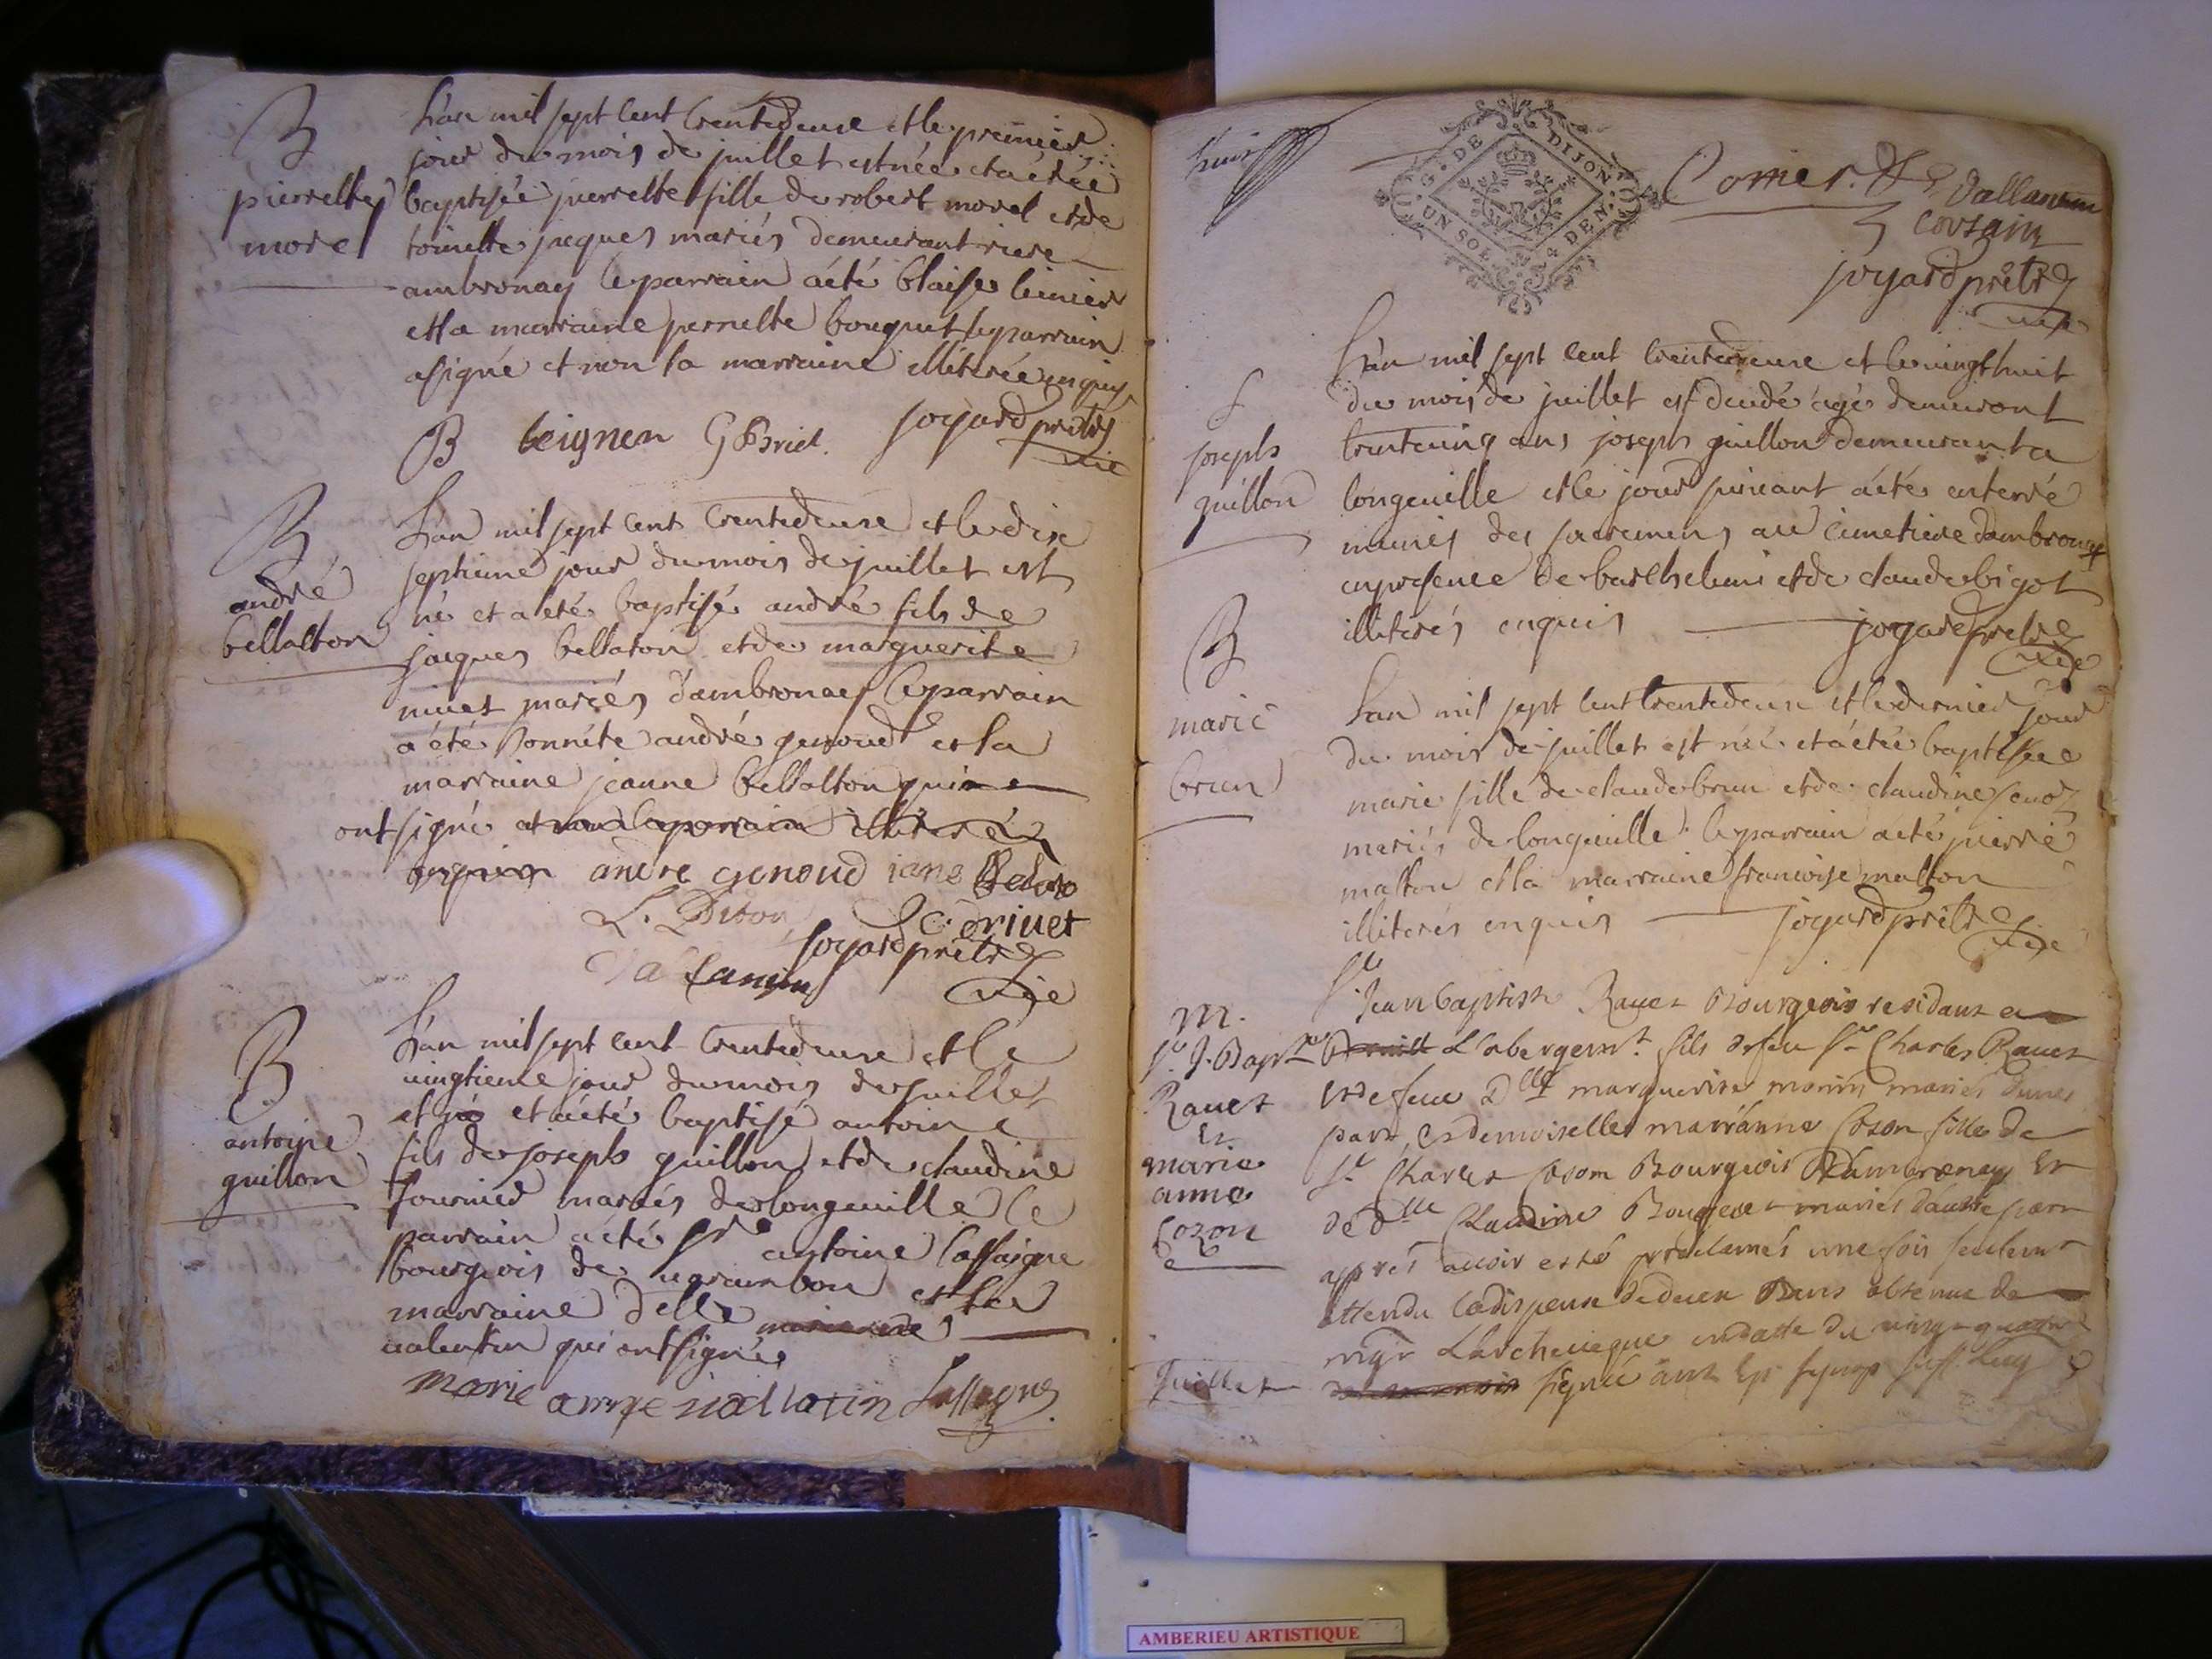 B
pierrette
morel
L'an mil sept cent trentedeuxe et le premier
jour du mois de juillet est née et a étée
baptisée pierrette fille de robert morel et de
toinette jaques mariés demeurant riere
ambronay le parrain a été blaise
et la marraine pernette bouquet le parrain
a signé et non la marraine illiterée enquis
B
joyard prêtre
vic
B
andré
bellatton
L'an mil sept cent trentedeuxe et le dix
septieme jour du mois de juillet est
né et a été baptisé andré fils de
jacques bellaton et de marguerite
niuet mariés d'ambronay le parrain
a été honnête andré genoud et la
marraine jeanne bellatton qui
ont signé et non le parrain illiteré
enquis andre genoud iane
joyard prêtre
vic
B
antoine
guillon
L'an mil sept cent trentedeuxe et le
vingtieme jour du mois de juillet
et né et a été baptisé antoine
fils de joseph guillon et de claudine
fournier mariés de longeuille le
parrain a été Sr antoine lassaigne
bourgeois de et la
marraine delle
valentin qui ont signé
marie anne
huit
G. DE DIJON
UN SOL 4 DEN.
joyard prêtre
vic
joseph
guillon
L'an mil sept cent trentedeuxe et le vingt huit
du mois de juillet est decedé agé denuiront
trentecinq ans joseph guillon demeurant a
longeuille et le jour suivant a été enterré
munis des sacremens au cimetiere d'ambronay
en presence de barthelemi et de claude bigot
illiterés enquis joyard pretre
vic
B
marie
brun
L'an mil sept cent trentedeuxe et le dernier jour
du mois de juillet est née et a étée baptisée
marie fille de claude brun et de claudine
mariés de longeuille le parrain a été pierre
malton et la marraine francoise malton
illiterés enquis joyard prêtre
vic
M.
Sr. J. Bapte
Rauet
Et
marie
anne
Cozon
Sr
Jean baptiste Rauet Bourgeois residant a
L'abergemt. fils de feu Sr Charles Rauet
et de feue Dlle marguerite mariés d'une
part, et demoiselle marianne Cozon fille de
Sr Charles Cozon Bourgeois D'ambronay Et
de Dlle Claudine mariés d'autre part
aprés auoir esté proclamés une fois seulemt
attendu la dispense de deux Bans obtenue de
mgr L'archeueque en datte du vingt quatre
Juillet signée
AMBERIEU ARTISTIQUE